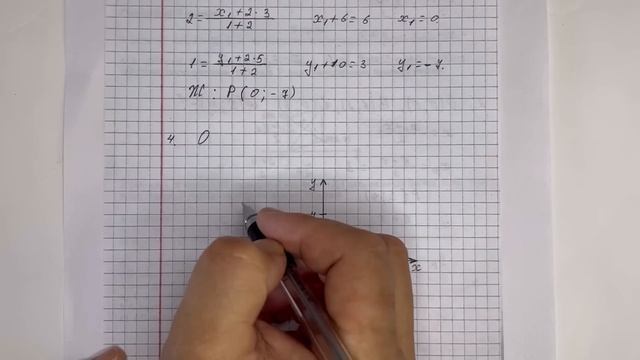 2 = (x₁+2·3)/(1+2) x₁+6=6 x₁=0
1 = (y₁+2·5)/(1+2) y₁+10=3 y₁=-7.
Ж: P(0;-7)
4. O
y
x